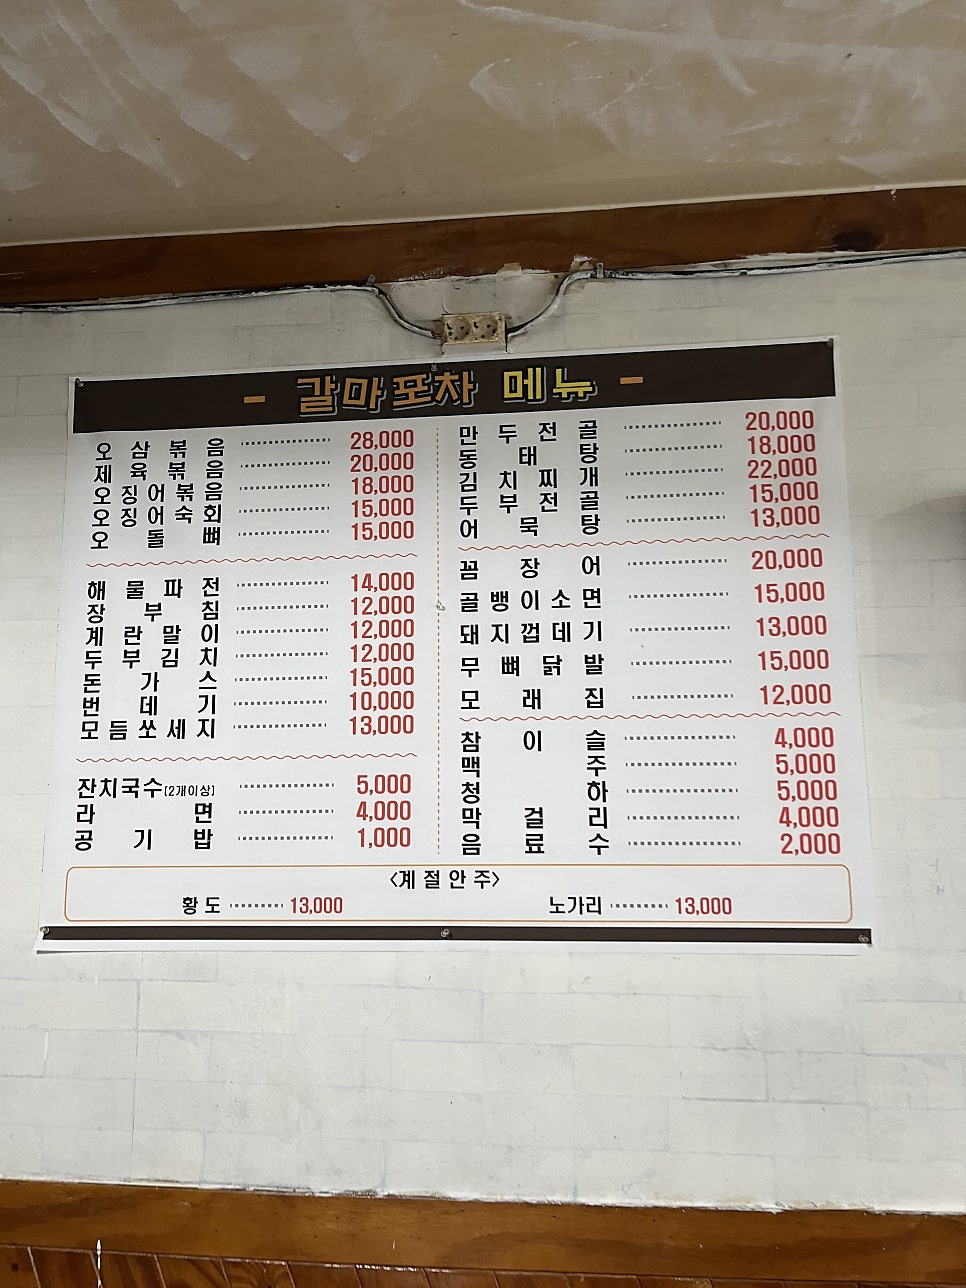 - 갈마포차 메뉴 -
오삼볶음 28,000
제육볶음 20,000
오징어볶음 18,000
오징어숙회 15,000
오돌뼈 15,000
해물파전 14,000
장부침 12,000
계란말이 12,000
두부김치 12,000
돈가스 15,000
번데기 10,000
모듬쏘세지 13,000
잔치국수(2개이상) 5,000
라면 4,000
공기밥 1,000
만두전골 20,000
동태탕 18,000
김치찌개 22,000
두부전골 15,000
어묵탕 13,000
꼼장어 20,000
골뱅이소면 15,000
돼지껍데기 13,000
무뼈닭발 15,000
모래집 12,000
참이슬 4,000
맥주 5,000
청하 5,000
막걸리 4,000
음료수 2,000
<계절안주>
황도 13,000
노가리 13,000